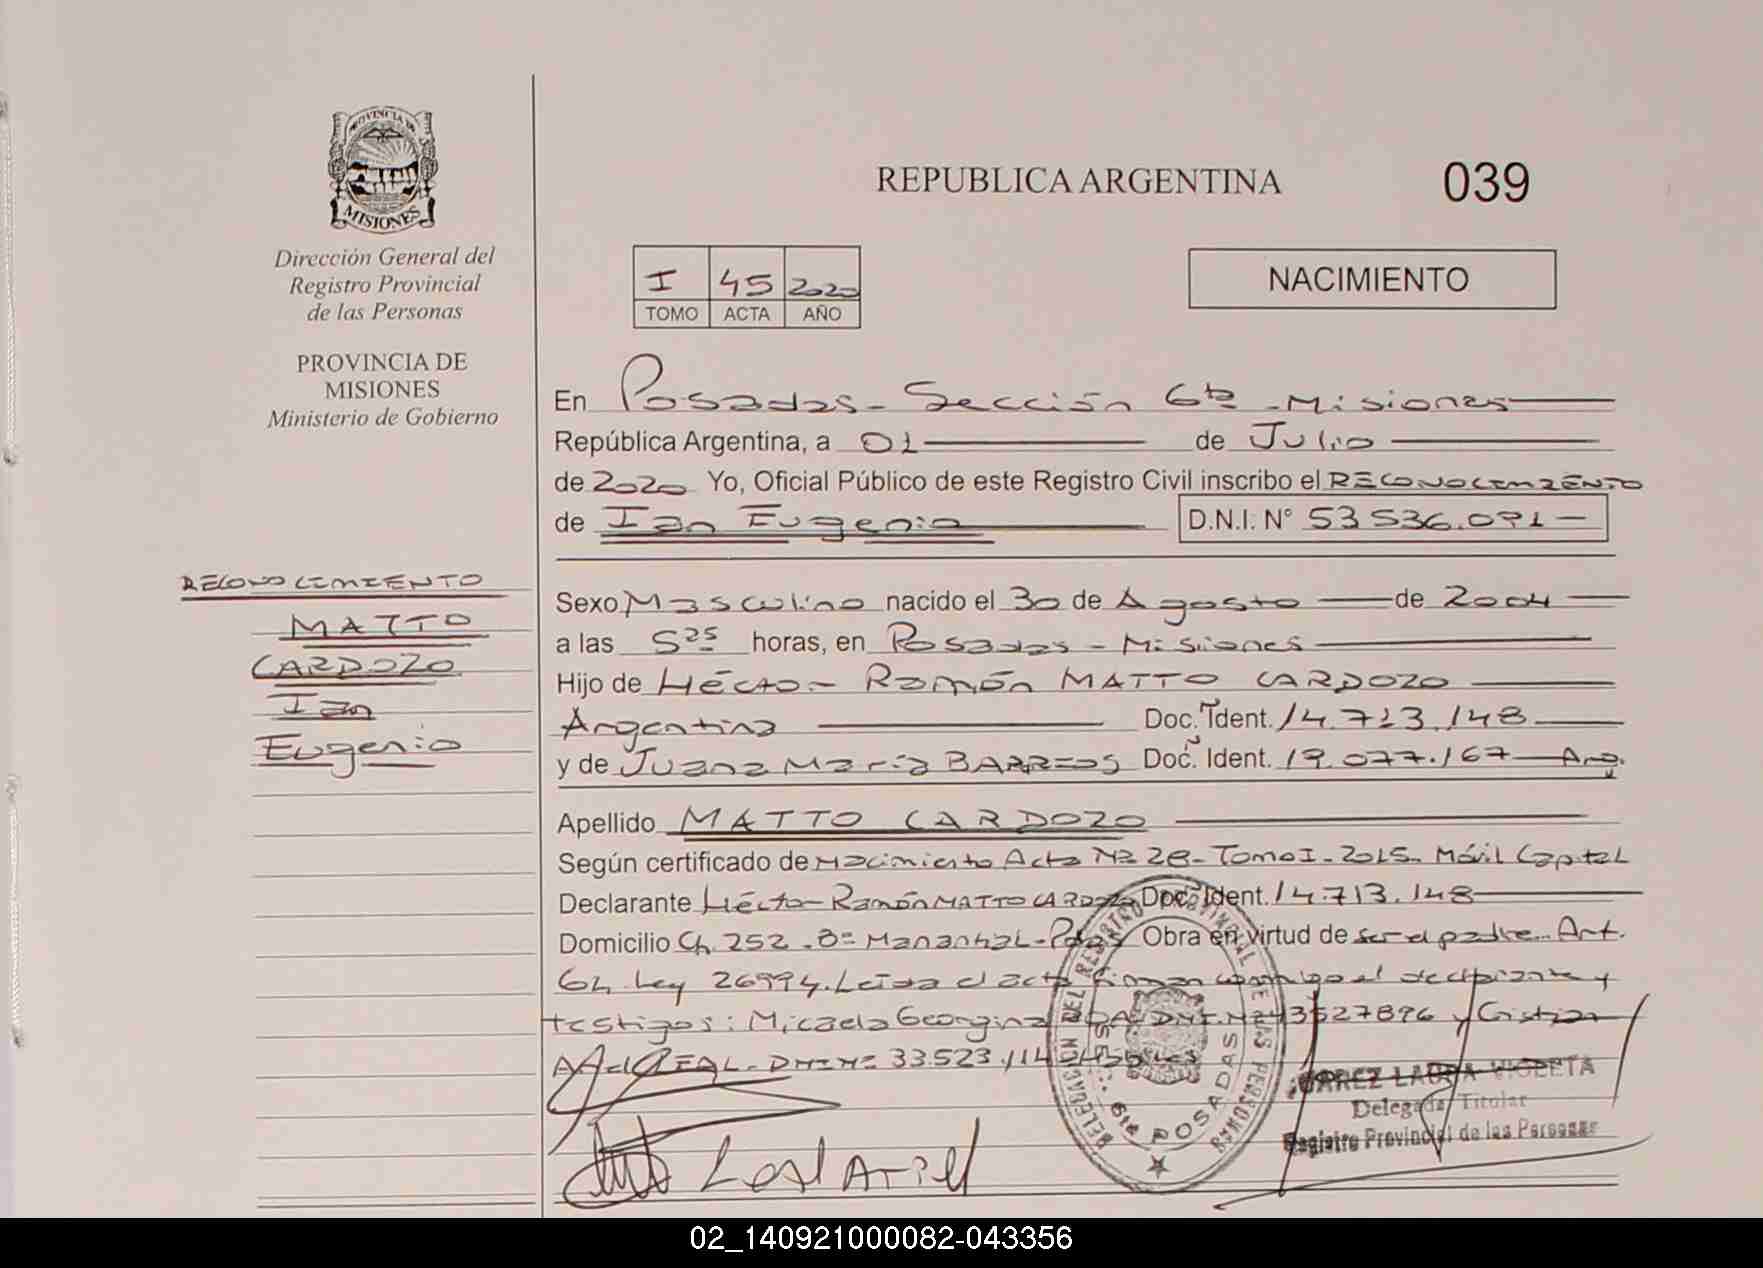 PROVINCIA DE
MISIONES
Dirección General del
Registro Provincial
de las Personas
PROVINCIA DE
MISIONES
Ministerio de Gobierno
RECONOCIMIENTO
MATTO
CARDOZO
Ian
Eugenio
REPUBLICA ARGENTINA
039
I 45 2020
TOMO ACTA AÑO
NACIMIENTO
En Posadas - Sección 6ta - Misiones
República Argentina, a 01 de Julio
de 2020 Yo, Oficial Público de este Registro Civil inscribo el RECONOCIMIENTO
de Ian Eugenio D.N.I. N° 53 536.091 -
Sexo Masculino nacido el 30 de Agosto de 2004
a las 5 25 horas, en Posadas - Misiones
Hijo de Héctor Ramón MATTO CARDOZO
Argentina Doc. Ident. 14.713.148
y de Juana María BARRIOS Doc. Ident. 19.077.167 Arg.
Apellido MATTO CARDOZO
Según certificado de Nacimiento Acta Nº 28 - Tomo I - 2015 - Móvil Capital
Declarante Héctor Ramón MATTO CARDOZO Doc. Ident. 14.713.148
Domicilio Ch. 252 - Bº Manantial - Pdas Obra en virtud de ser el padre. Art.
64 Ley 26994. Leida el acta firman conmigo el declarante y
testigos: Micaela Georgina DNI Nº 43527896 y Cristian
LEAL - DNI Nº 33.523.114
Leal Ariel
DELEGACION DEL REGISTRO PROVINCIAL DE LAS PERSONAS
SEC. 6ta POSADAS
JUAREZ LAURA VIOLETA
Delegada Titular
Registro Provincial de las Personas
02_140921000082-043356